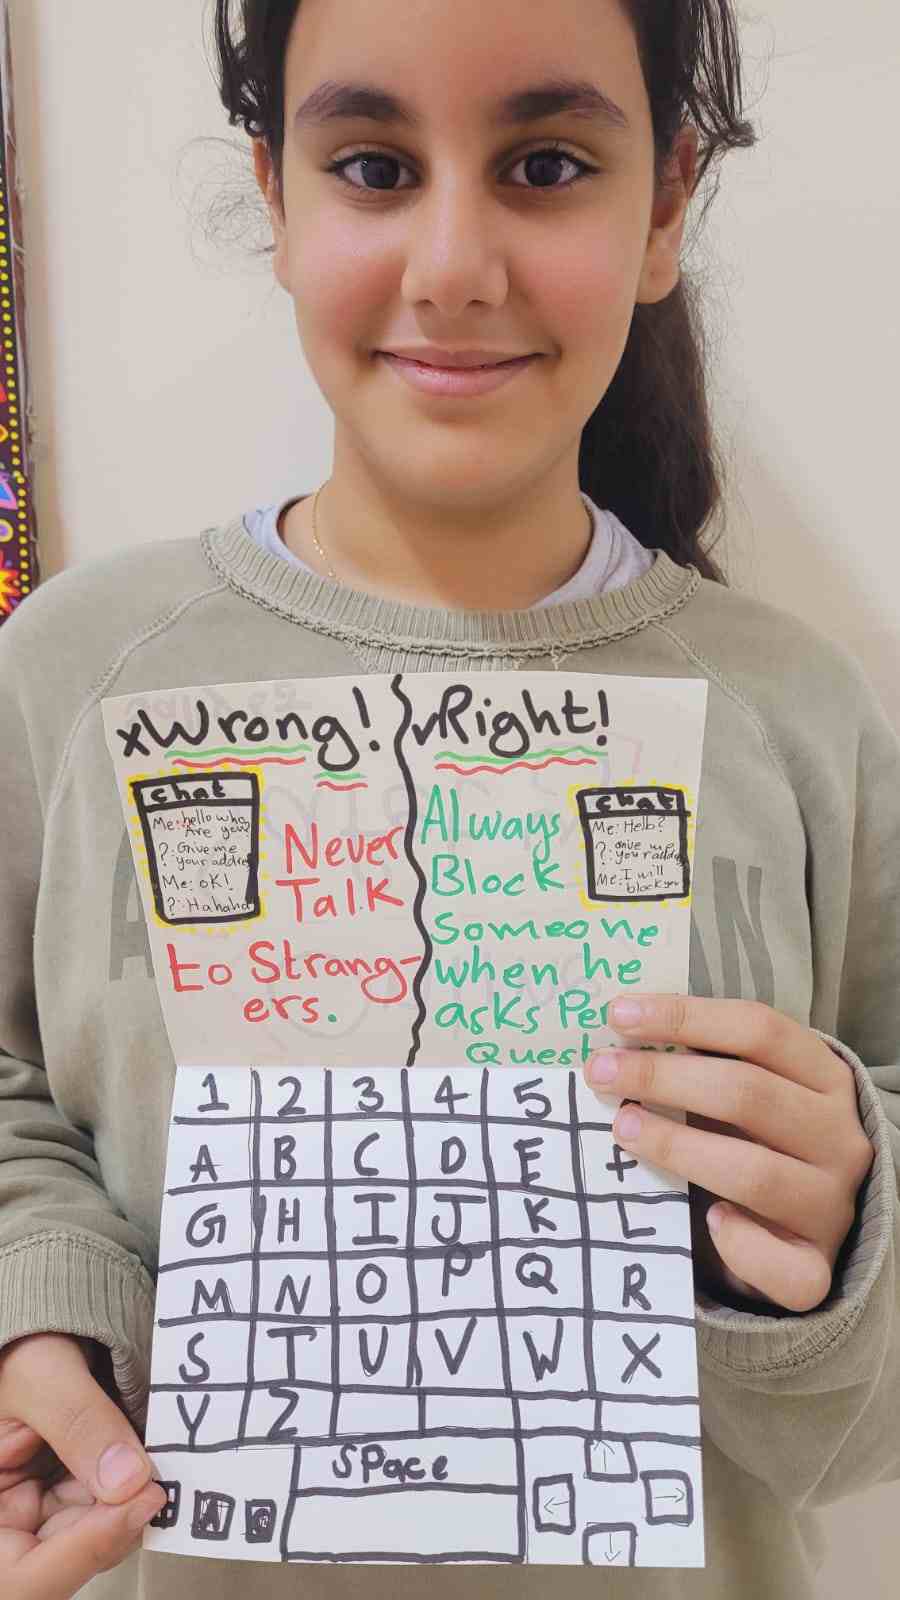 xWrong!
chat
Me: hello who
Are you?
?: Give me
your addre
Me: OK!
?: Hahaha
Never
Talk
to Strang-
ers.
vRight!
chat
Me: Hello?
?: Give me
your addre
Me: I will
block you
Always
Block
someone
when he
asks Per
Quest
1 2 3 4 5
A B C D E F
G H I J K L
M N O P Q R
S T U V W X
Y Z
Space
← ↑ → ↓
AN